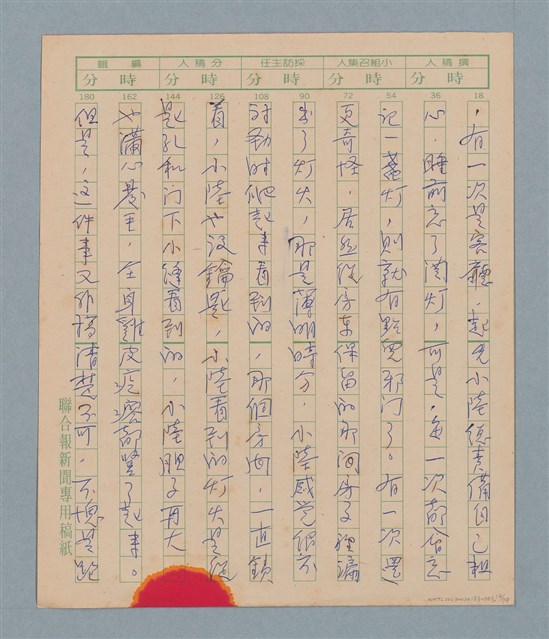 撰稿人 小組召集人 採訪主任 分稿人 編輯
時 分 時 分 時 分 時 分 時 分
18 36 54 72 90 108 126 144 162 180
，有一次是客廳，起先小陸總責備自己粗
心，睡前忘了關灯，可是，每一次都會忘
記一盞灯，則就有點兒邪门了。有一次還
更奇怪，居然從房東保留的那间房子裡漏
出了灯火，那是薄明時分，小陸感覺個不
對勁时爬起來看到的，那個房间，一直鎖
着，小陸也沒鑰匙，小陸看到的灯火是從
匙孔和门下小縫看到的，小陸胆子再大
也滿心發毛，全身雞皮疙瘩都豎了起來。
但是，这一件事又非搞清楚不可，不愧是跑
聯合報新聞專用稿紙